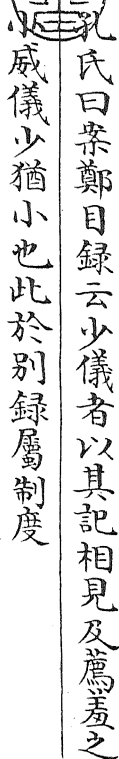 孔氏曰案鄭目録云少儀者以其記相見及薦羞之
小威儀少猶小也此於别録屬制度